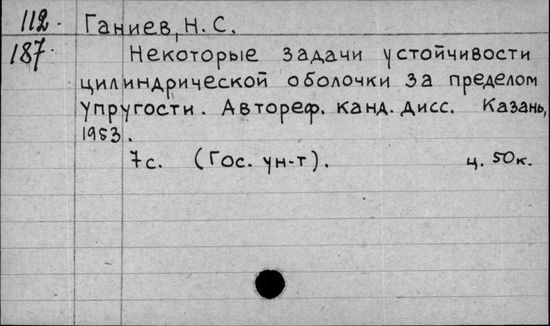 112. Ганиев, Н. С.
187. Некоторые задачи устойчивости
цилиндрической оболочки за пределом
упругости. Автореф. канд. дисс. Казань,
1953.
7с. (Гос. ун-т). ц. 50к.